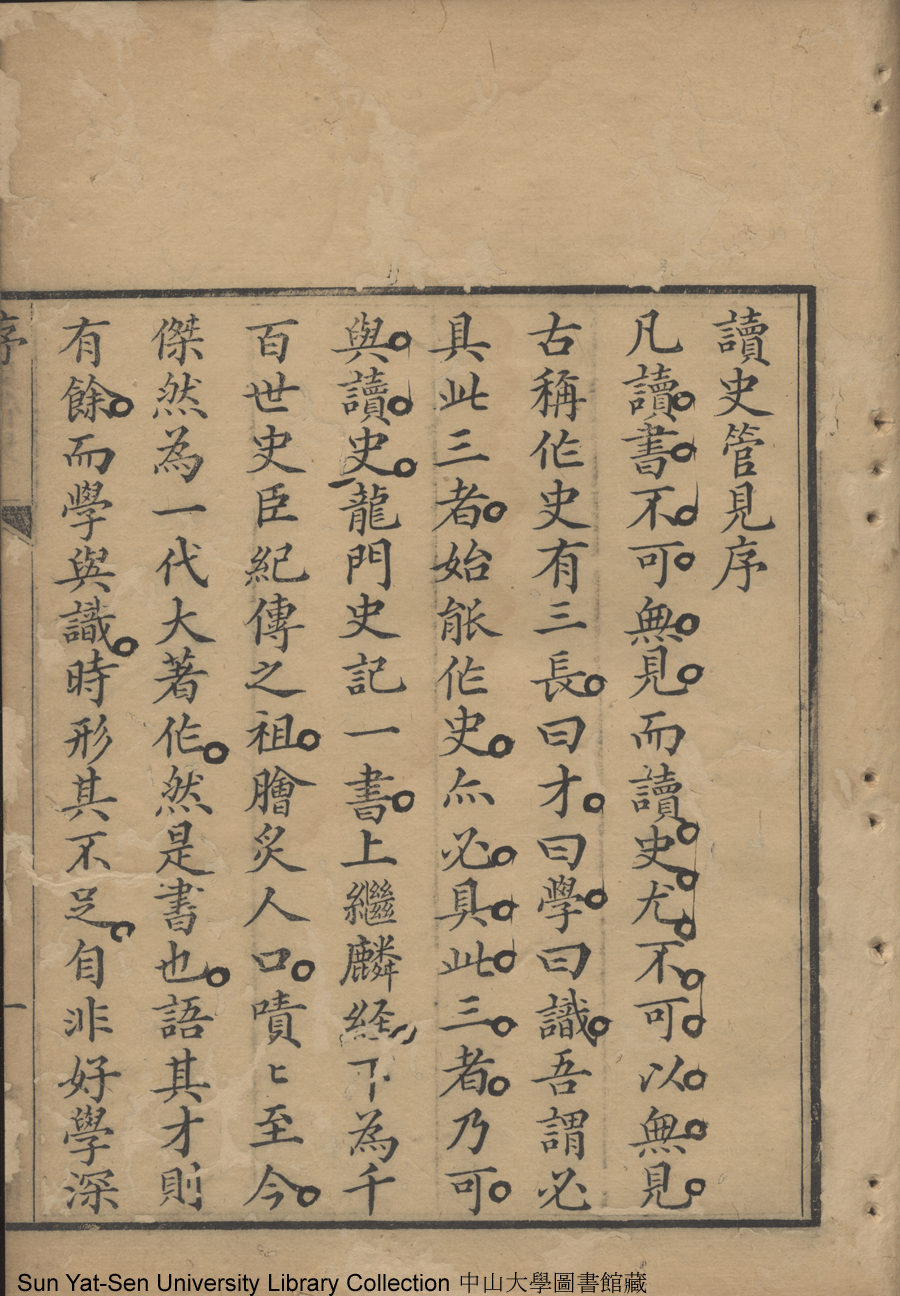 讀史管見序
凡讀書不可無見而讀史尤不可以無見
古稱作史有三長曰才曰學曰識吾謂必
具此三者始能作史亦必具此三者乃可
與讀史龍門史記一書上繼麟経下為千
百世史臣紀傳之祖膾炙人口嘖〻至今
傑然為一代大著作然是書也語其才則
有餘而學與識時形其不足自非好學深
序
一
Sun Yat-Sen University Library Collection 中山大學圖書館藏